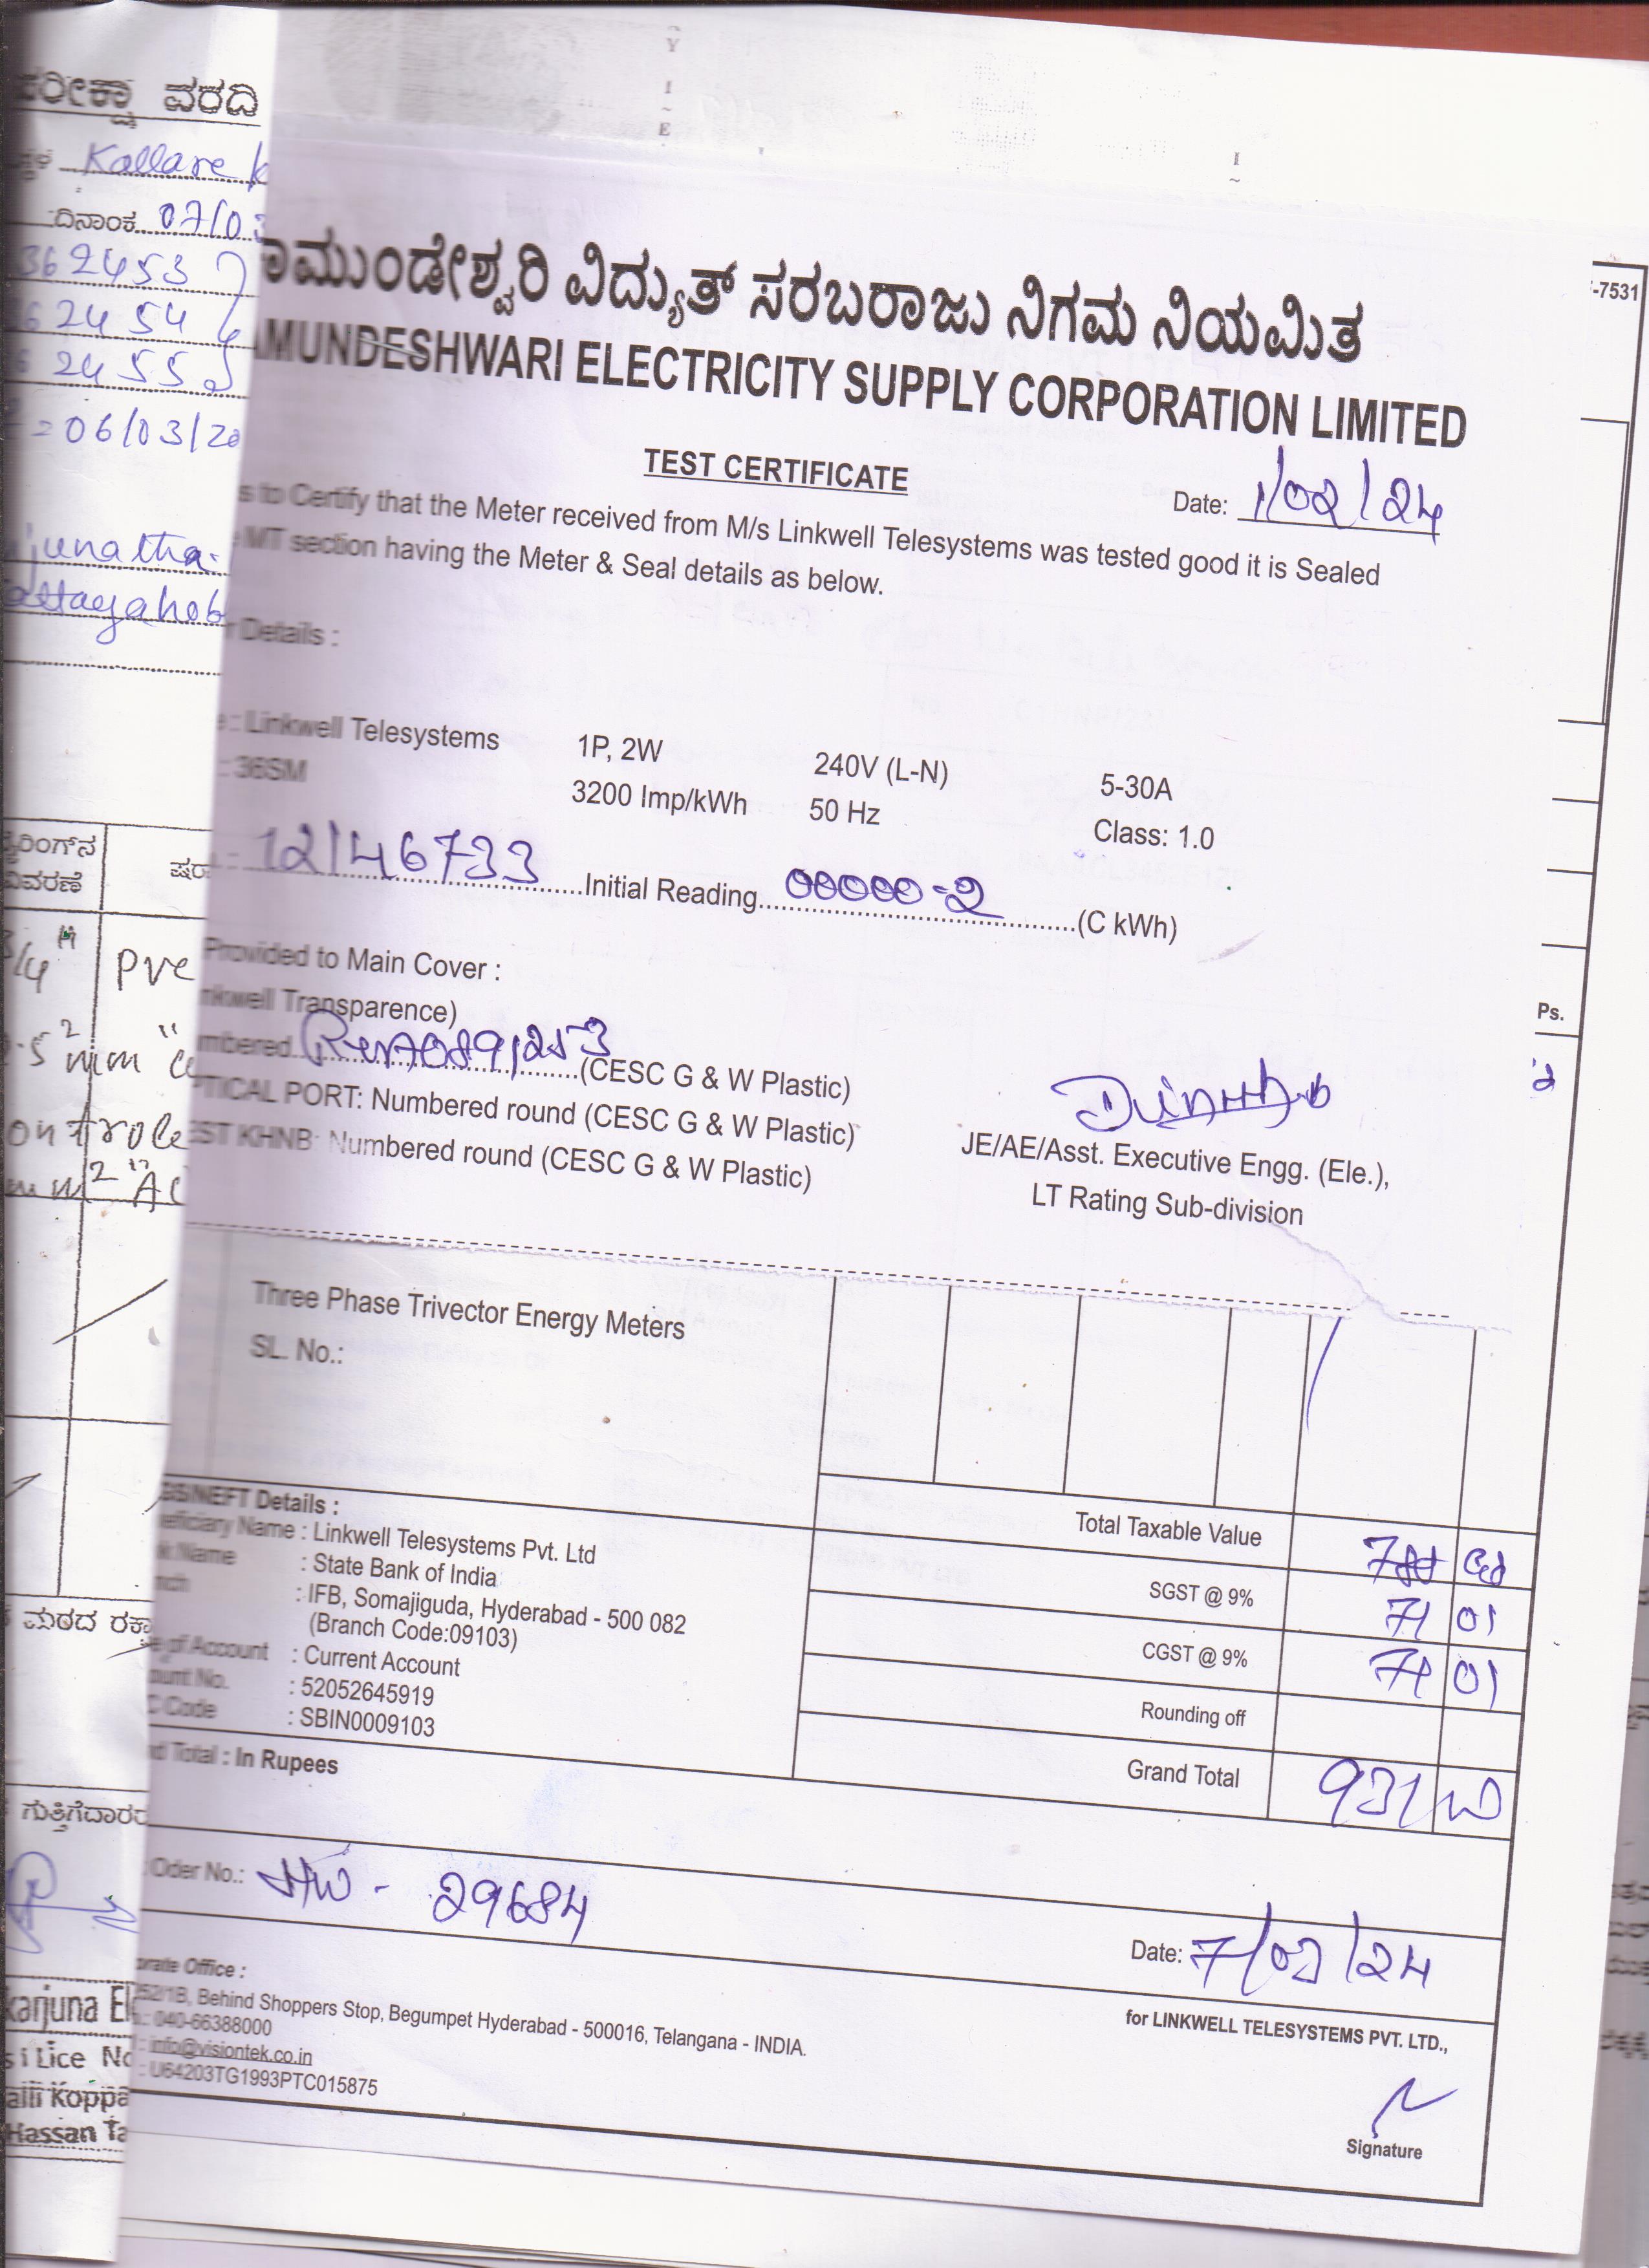 ವರದಿ
Kallare
ದಿನಾಂಕ 07/03
362453
62454
62455
=06/03/20
junatha.
ವಿವರಣೆ
3/4" pvc
mm
ಮಠದ
ಗುತ್ತಿಗೆದಾರರ
Lice No
Koppa
Hassan Ta
Y
I
~
E
I
~
-7531
ಾಮುಂಡೇಶ್ವರಿ ವಿದ್ಯುತ್ ಸರಬರಾಜು ನಿಗಮ ನಿಯಮಿತ
AMUNDESHWARI ELECTRICITY SUPPLY CORPORATION LIMITED
TEST CERTIFICATE
Date: 1/02/24
s to Certify that the Meter received from M/s Linkwell Telesystems was tested good it is Sealed
MT section having the Meter & Seal details as below.
Details :
: Linkwell Telesystems 1P, 2W 240V (L-N) 5-30A
: 36SM 3200 Imp/kWh 50 Hz Class: 1.0
: 12146733 Initial Reading 00000-2 (C kWh)
Provided to Main Cover :
nkwell Transparence)
mbered 0891253 (CESC G & W Plastic)
TICAL PORT: Numbered round (CESC G & W Plastic)
EST KHNB: Numbered round (CESC G & W Plastic)
JE/AE/Asst. Executive Engg. (Ele.),
LT Rating Sub-division
Ps.
Three Phase Trivector Energy Meters
SL. No.:
GS/NEFT Details :
eficiary Name : Linkwell Telesystems Pvt. Ltd
k Name : State Bank of India
nch : IFB, Somajiguda, Hyderabad - 500 082
(Branch Code:09103)
e of Account : Current Account
ount No. : 52052645919
C Code : SBIN0009103
nd Total : In Rupees
Total Taxable Value
SGST @ 9% 71 01
CGST @ 9% 71 01
Rounding off
Grand Total 931
Oder No.: HW - 29684
Date: 7/02/24
orate Office :
252/1B, Behind Shoppers Stop, Begumpet Hyderabad - 500016, Telangana - INDIA.
: 040-66388000
: info@visiontek.co.in
: U64203TG1993PTC015875
for LINKWELL TELESYSTEMS PVT. LTD.,
Signature